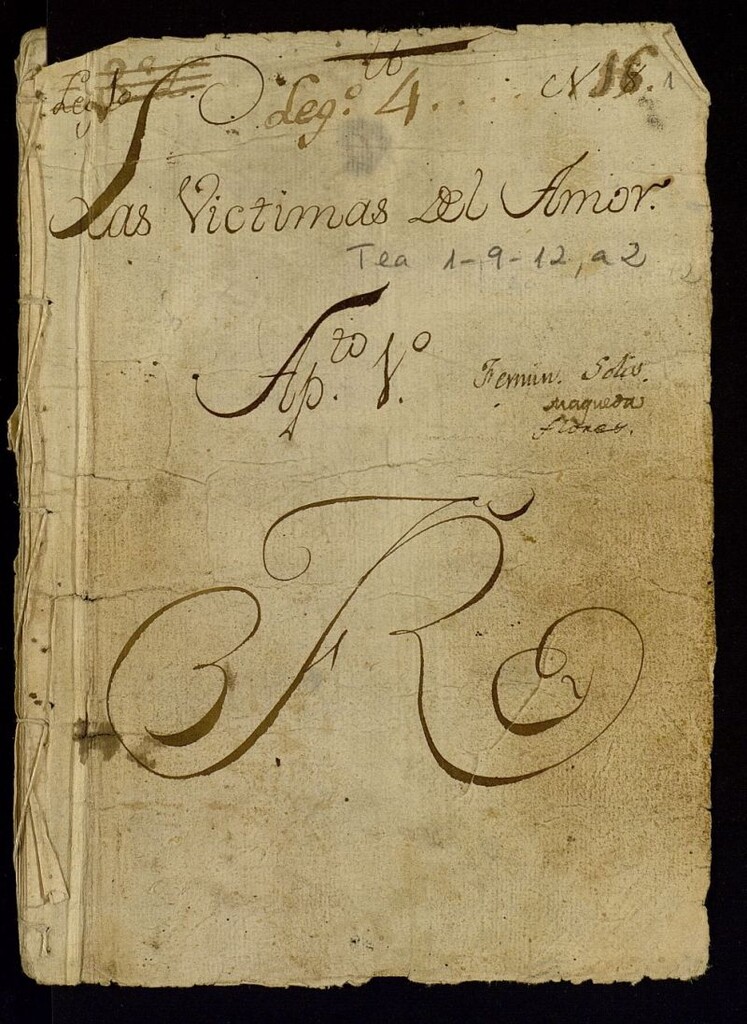 Leg.º 4.... N 16. 1
Las Victimas Del Amor.
Tea 1-9-12, a2
Ap.to 1.º
Fermin. Solis.
Maqueda
flores.